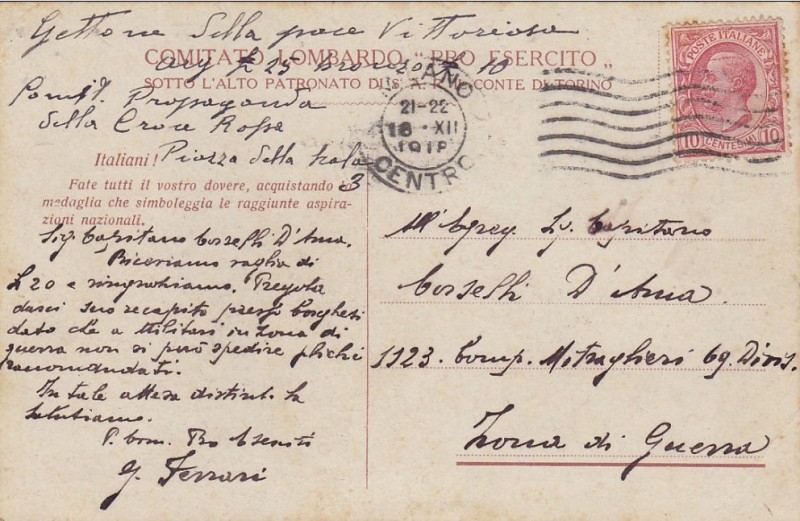 Gettone della pace Vittoriosa
COMITATO LOMBARDO "PRO ESERCITO"
arg £ 25 bronzo £ 10
SOTTO L'ALTO PATRONATO DI S. A. R. CONTE DI TORINO
Comit. Propaganda
della Croce Rossa
Piazza della Scala
3
Italiani!
Fate tutti il vostro dovere, acquistando la
medaglia che simboleggia le raggiunte aspira-
zioni nazionali.
Sig. Capitano Corselli D'Ama.
Riceviamo vaglia di
£20 e ringraziamo. Pregola
darci suo recapito presso borghesi
dato che a Militari in zona di
guerra non si può spedire plichi
raccomandati.
In tale attesa distint. la
salutiamo.
p. Com. Pro Esercito
G. Ferrari
MILANO
21-22
16 XII
1918
CENTRO
POSTE ITALIANE
10 CENTESIMI 10
All'Egreg. Sig. Capitano
Corselli D'Ama.
1123. Comp. Mitraglieri 69. Divis.
Zona di Guerra